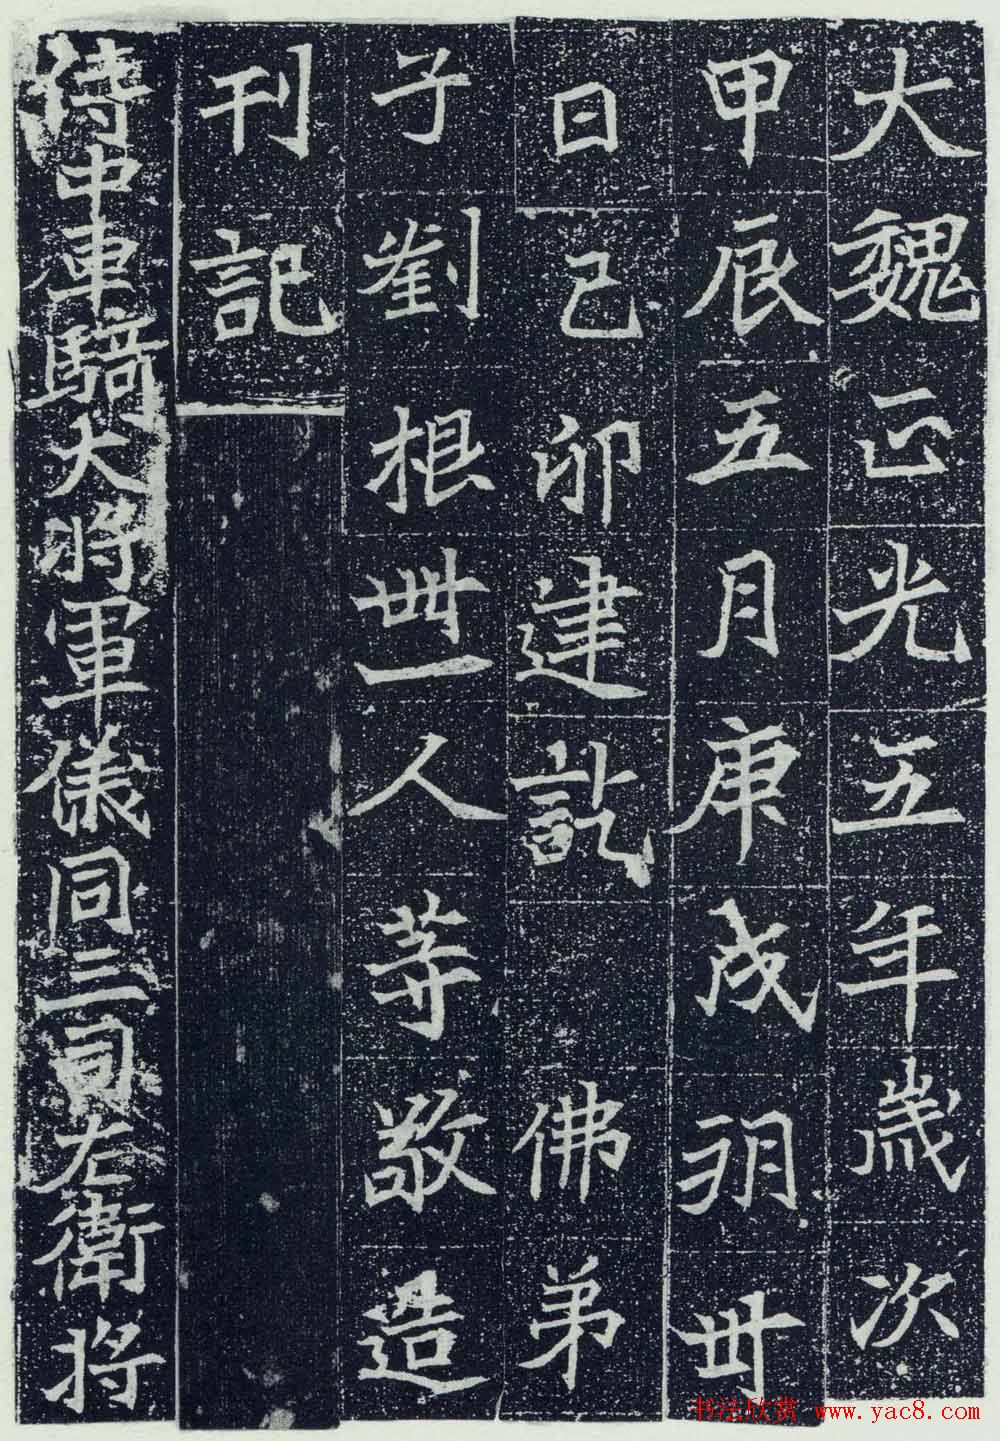 大魏正光五年歲次
甲辰五月庚戌朔卅
日己卯建訖 佛弟
子劉根卌一人等敬造
刊記
侍中車騎大將軍儀同三司左衛將
书法欣赏 www.yac8.com